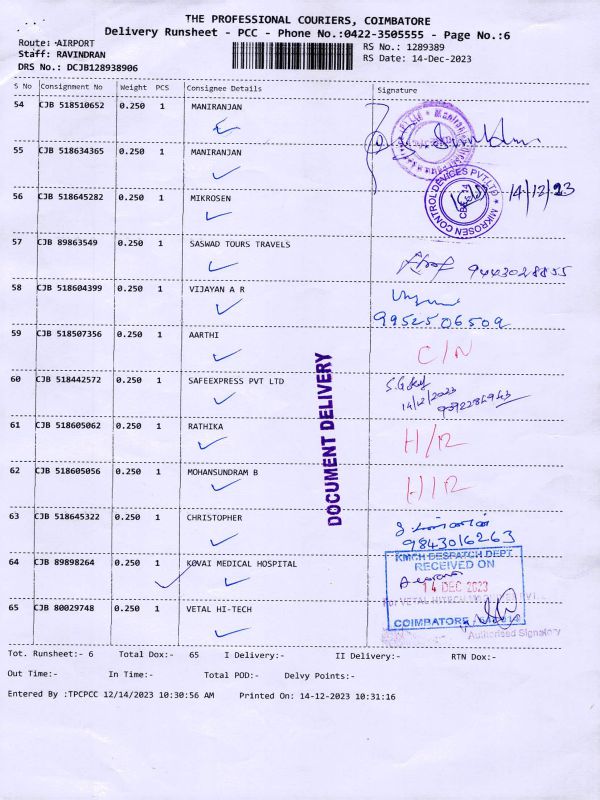 THE PROFESSIONAL COURIERS, COIMBATORE
Delivery Runsheet - PCC - Phone No.:0422-3505555 - Page No.:6
Route: AIRPORT
RS No.: 1289389
Staff: RAVINDRAN
RS Date: 14-Dec-2023
DRS No.: DCJB128938906
S No Consignment No Weight PCS Consignee Details Signature
54 CJB 518510652 0.250 1 MANIRANJAN
55 CJB 518634365 0.250 1 MANIRANJAN
56 CJB 518645282 0.250 1 MIKROSEN
MIKROSEN CONTROL DEVICES PVT LTD
14/12/23
57 CJB 89863549 0.250 1 SASWAD TOURS TRAVELS
9443028855
58 CJB 518604399 0.250 1 VIJAYAN A R
9952506509
59 CJB 518507356 0.250 1 AARTHI
C/N
60 CJB 518442572 0.250 1 SAFEEXPRESS PVT LTD
14/12/2023
61 CJB 518605062 0.250 1 RATHIKA
H/R
62 CJB 518605056 0.250 1 MOHANSUNDRAM B
H/R
DOCUMENT DELIVERY
63 CJB 518645322 0.250 1 CHRISTOPHER
9843016263
64 CJB 89898264 0.250 1 KOVAI MEDICAL HOSPITAL
KMCH DESPATCH DEPT.
RECEIVED ON
14 DEC 2023
65 CJB 80029748 0.250 1 VETAL HI-TECH
COIMBATORE
Authorised Signatory
Tot. Runsheet:- 6 Total Dox:- 65 I Delivery:- II Delivery:- RTN Dox:-
Out Time:- In Time:- Total POD:- Delvy Points:-
Entered By :TPCPCC 12/14/2023 10:30:56 AM Printed On: 14-12-2023 10:31:16